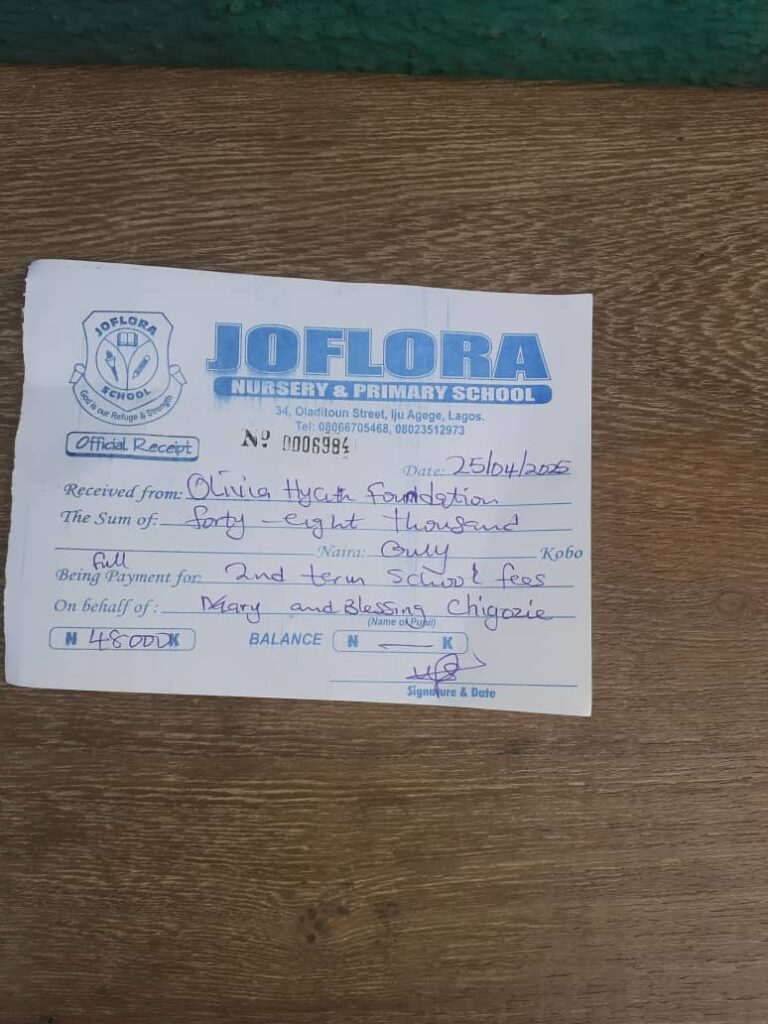 JOFLORA
SCHOOL
God is our Refuge & Strength
JOFLORA
NURSERY & PRIMARY SCHOOL
34, Oladitoun Street, Iju Agege, Lagos.
Tel: 08066705468, 08023512973
Official Receipt
Nº 0006984
Date: 25/04/2025
Received from: Olivia Hycith Foundation
The Sum of: forty-eight thousand
Naira: Only Kobo
Full
Being Payment for: 2nd term school fees
On behalf of: Mary and Blessing Chigozie
(Name of Pupil)
N 48000 K BALANCE N — K
Signature & Date